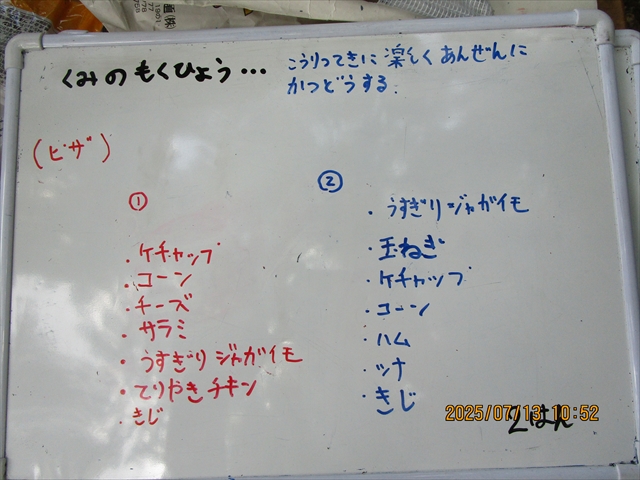 くみのもくひょう…
こうりってきに楽しくあんぜんに
かつどうする.
(ピザ)
①
・ケチャップ
・コーン
・チーズ
・サラミ
・うすぎりジャガイモ
・てりやきチキン
・きじ
②
・うすぎりジャガイモ
・玉ねぎ
・ケチャップ
・コーン
・ハム
・ツナ
・きじ
2はん
2025/07/13 10:52